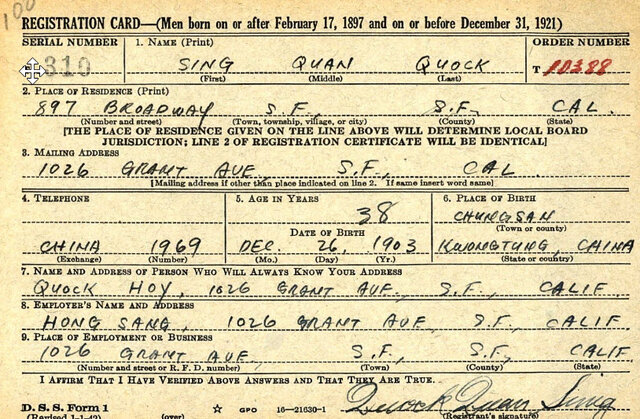 100
REGISTRATION CARD—(Men born on or after February 17, 1897 and on or before December 31, 1921)
SERIAL NUMBER 1. NAME (Print) ORDER NUMBER
310 SING QUAN QUOCK T 10388
(First) (Middle) (Last)
2. PLACE OF RESIDENCE (Print)
897 BROADWAY S.F. S.F. CAL.
(Number and street) (Town, township, village, or city) (County) (State)
[THE PLACE OF RESIDENCE GIVEN ON THE LINE ABOVE WILL DETERMINE LOCAL BOARD
JURISDICTION; LINE 2 OF REGISTRATION CERTIFICATE WILL BE IDENTICAL]
3. MAILING ADDRESS
1026 GRANT AVE. S.F. CAL
[Mailing address if other than place indicated on line 2. If same insert word same]
4. TELEPHONE 5. AGE IN YEARS 6. PLACE OF BIRTH
38 CHUNGSAN
DATE OF BIRTH (Town or county)
CHINA 1969 DEC. 26, 1903 KWONGTUNG, CHINA
(Exchange) (Number) (Mo.) (Day) (Yr.) (State or country)
7. NAME AND ADDRESS OF PERSON WHO WILL ALWAYS KNOW YOUR ADDRESS
QUOCK HOY, 1026 GRANT AVE., S.F., CALIF.
8. EMPLOYER'S NAME AND ADDRESS
HONG SANG, 1026 GRANT AVE, S.F., CALIF.
9. PLACE OF EMPLOYMENT OR BUSINESS
1026 GRANT AVE. S.F., S.F., CALIF
(Number and street or R. F. D. number) (Town) (County) (State)
I AFFIRM THAT I HAVE VERIFIED ABOVE ANSWERS AND THAT THEY ARE TRUE.
D. S. S. Form 1 Quock Quan Sing
(Revised 1-1-42) (over) GPO 16—21630-1 (Registrant's signature)